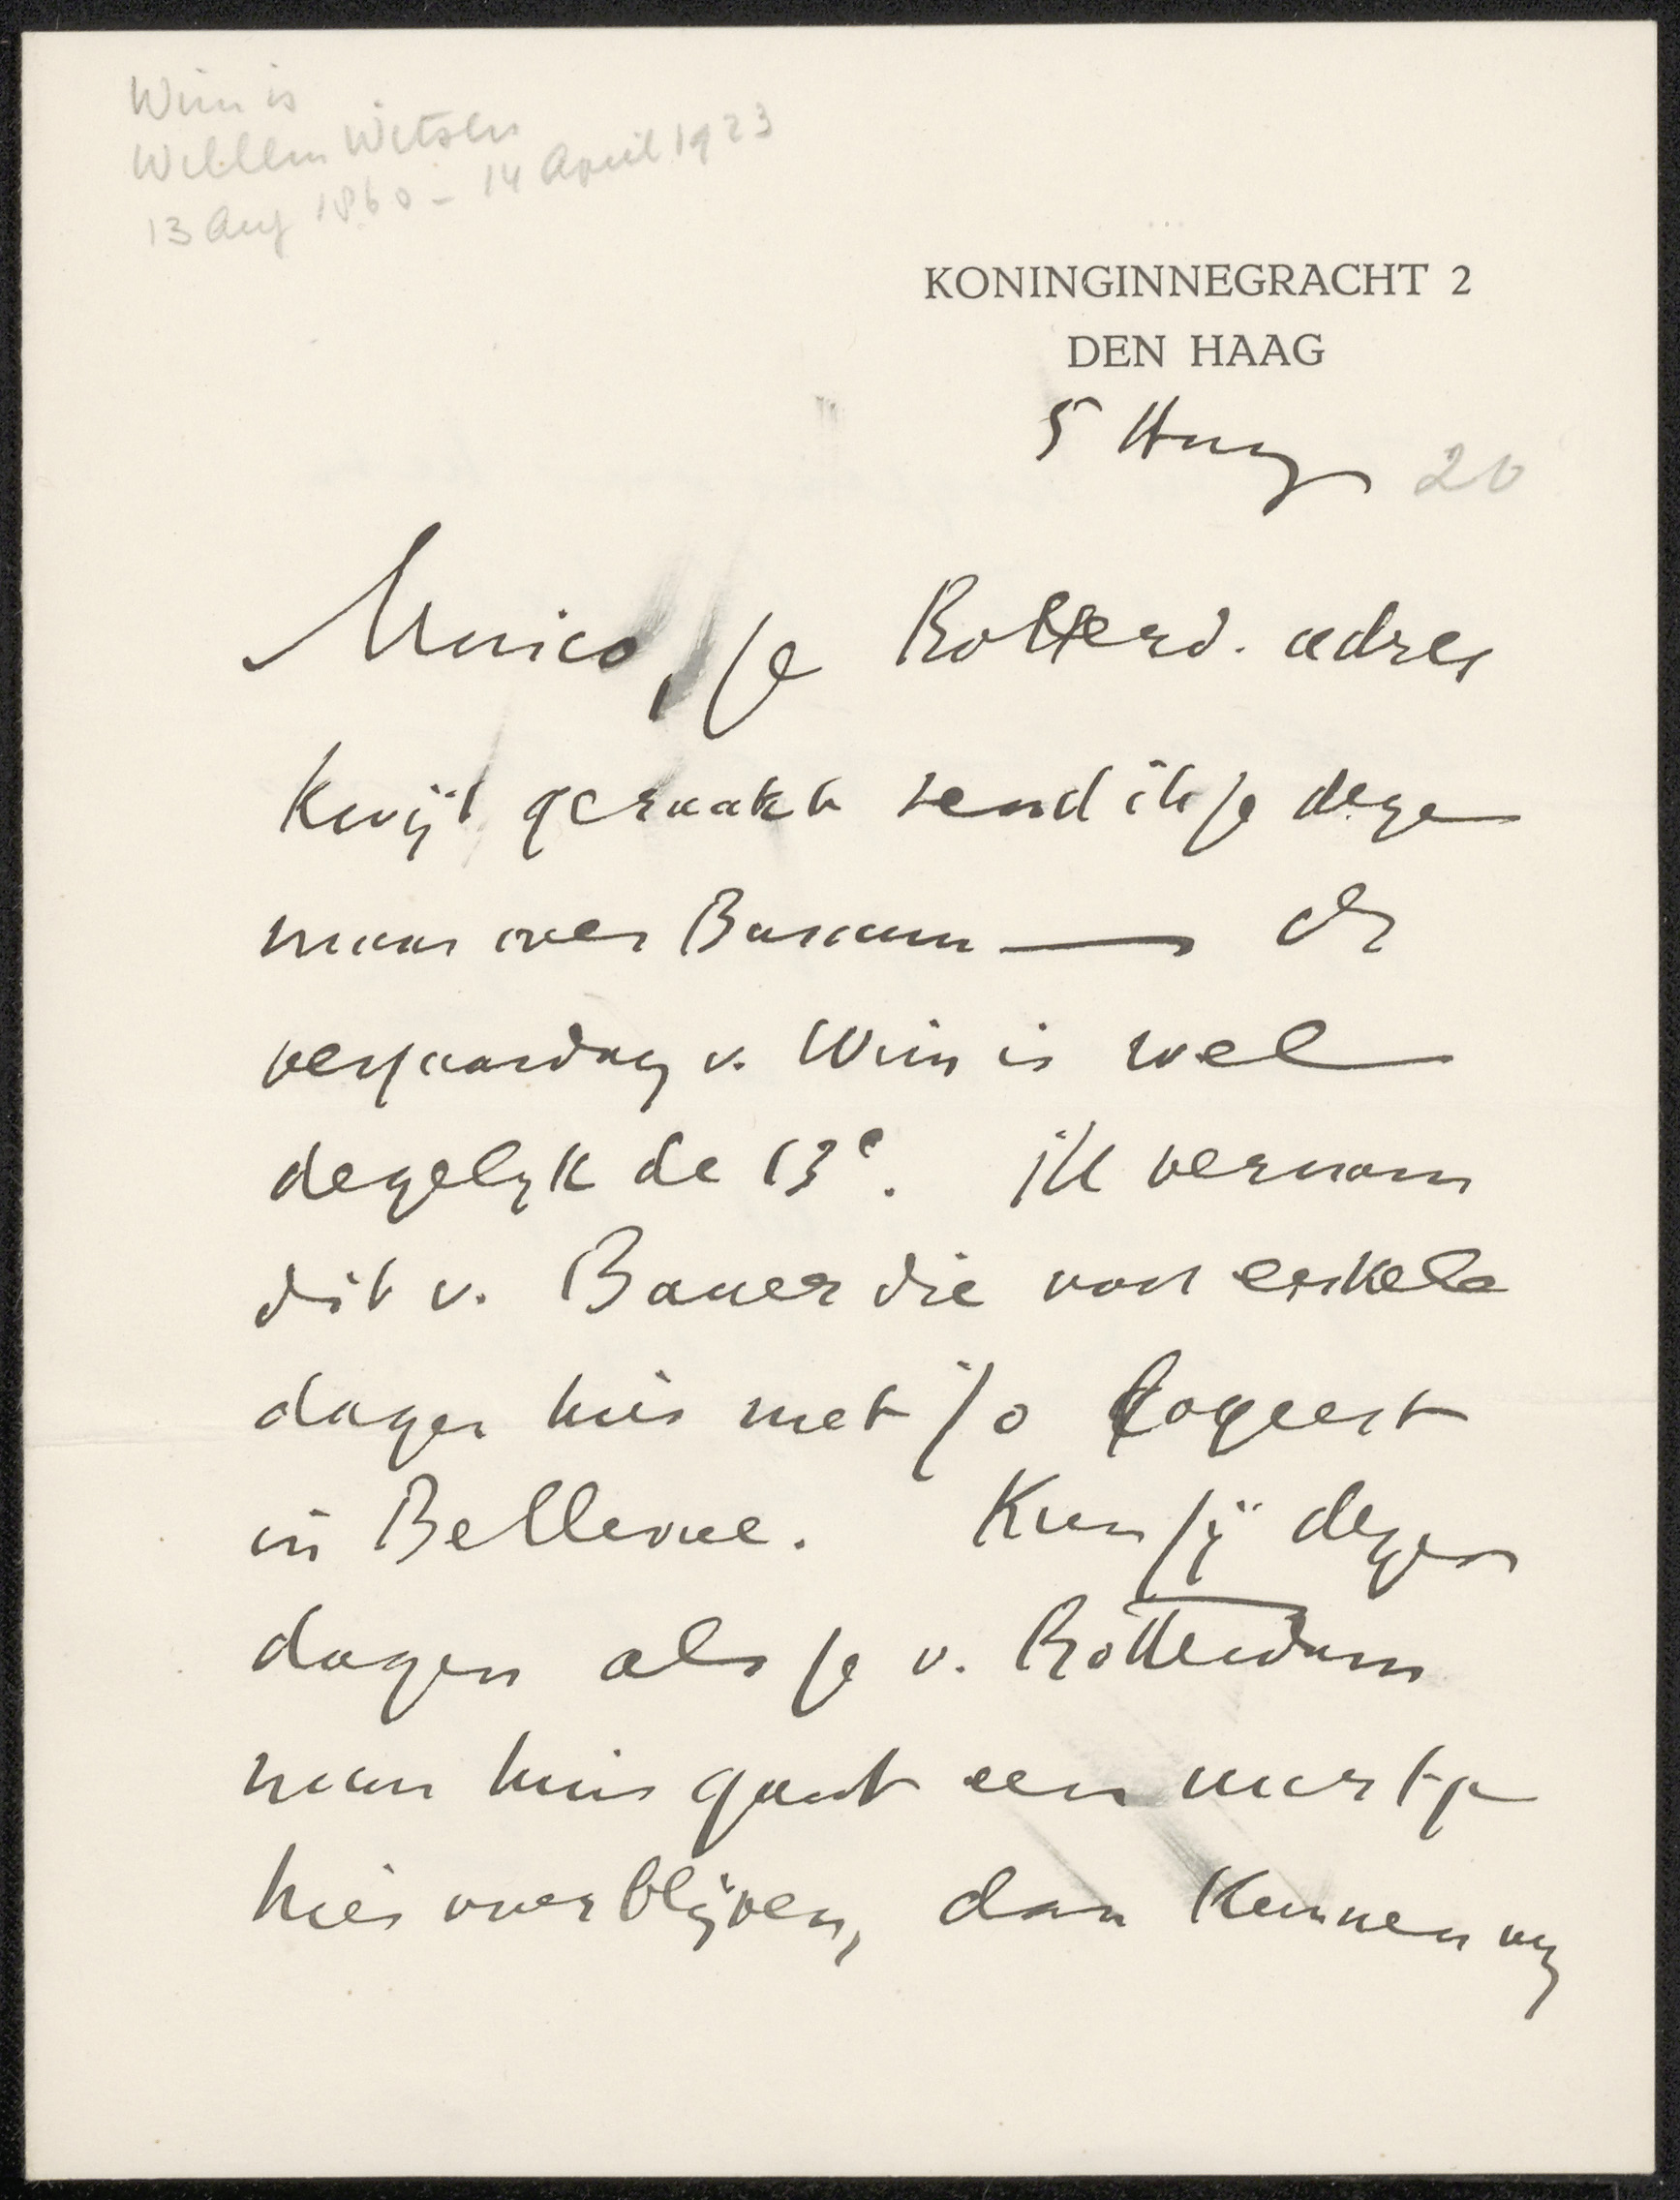 Wim is
Willem Witsen
13 Aug 1860 - 14 April 1923
KONINGINNEGRACHT 2
DEN HAAG
5 Aug 20
Amico, je Rotterd. adres
kwijt geraakt zend ik je deze
maar over Bussum — de
verjaardag v. Wim is wel
degelijk de 13e. ik vernam
dit v. Bauer die voor enkele
dagen hier met Jo logeert
in Bellevue. Kun jij dezer
dagen als je v. Rotterdam
naar huis gaat een uurtje
hier overblijven, dan kunnen wij